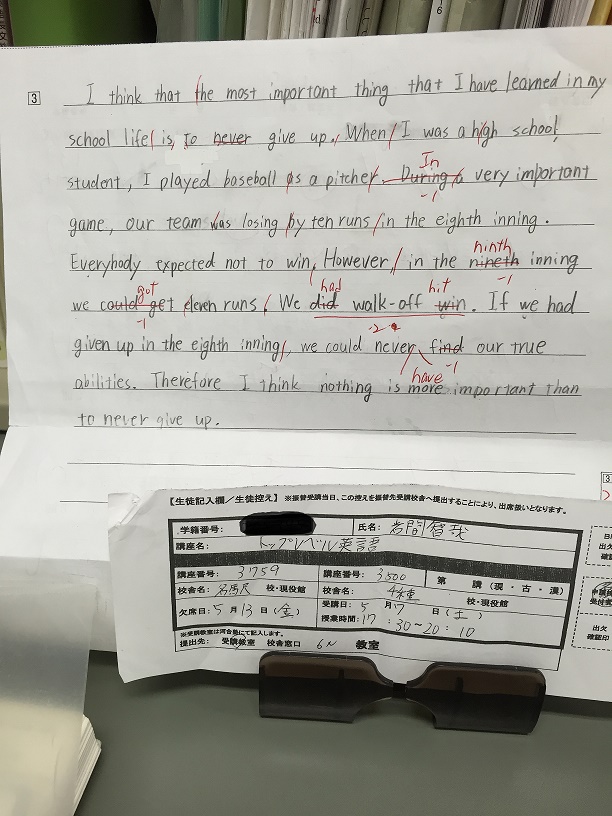 3
I think that the most important thing that I have learned in my
school life is, to never give up. When I was a high school
student, I played baseball as a pitcher. During a very important
In
-1
game, our team was losing by ten runs in the eighth inning.
Everybody expected not to win. However, in the nineth inning
ninth
-1
we could get eleven runs. We did walk-off win. If we had
got
-1
had
hit
-2
given up in the eighth inning, we could never find our true
have
-1
abilities. Therefore I think nothing is more important than
to never give up.
【生徒記入欄/生徒控え】 ※振替受講当日、この控えを振替先受講校舎へ提出することにより、出席扱いとなります。
学籍番号: 氏名: 岩間智哉
講座名: トップレベル英語
講座番号: 3759 講座番号: 3500 第 講(現・古・漢)
校舎名: 校・現役館 校舎名: 千種 校・現役館
欠席日: 5月13日(金) 受講日: 5月7日(土)
授業時間: 17:30~20:10
※受講教室は河合塾にて記入します。
提出先: 受講教室 校舎窓口 6N 教室
出欠
確認印